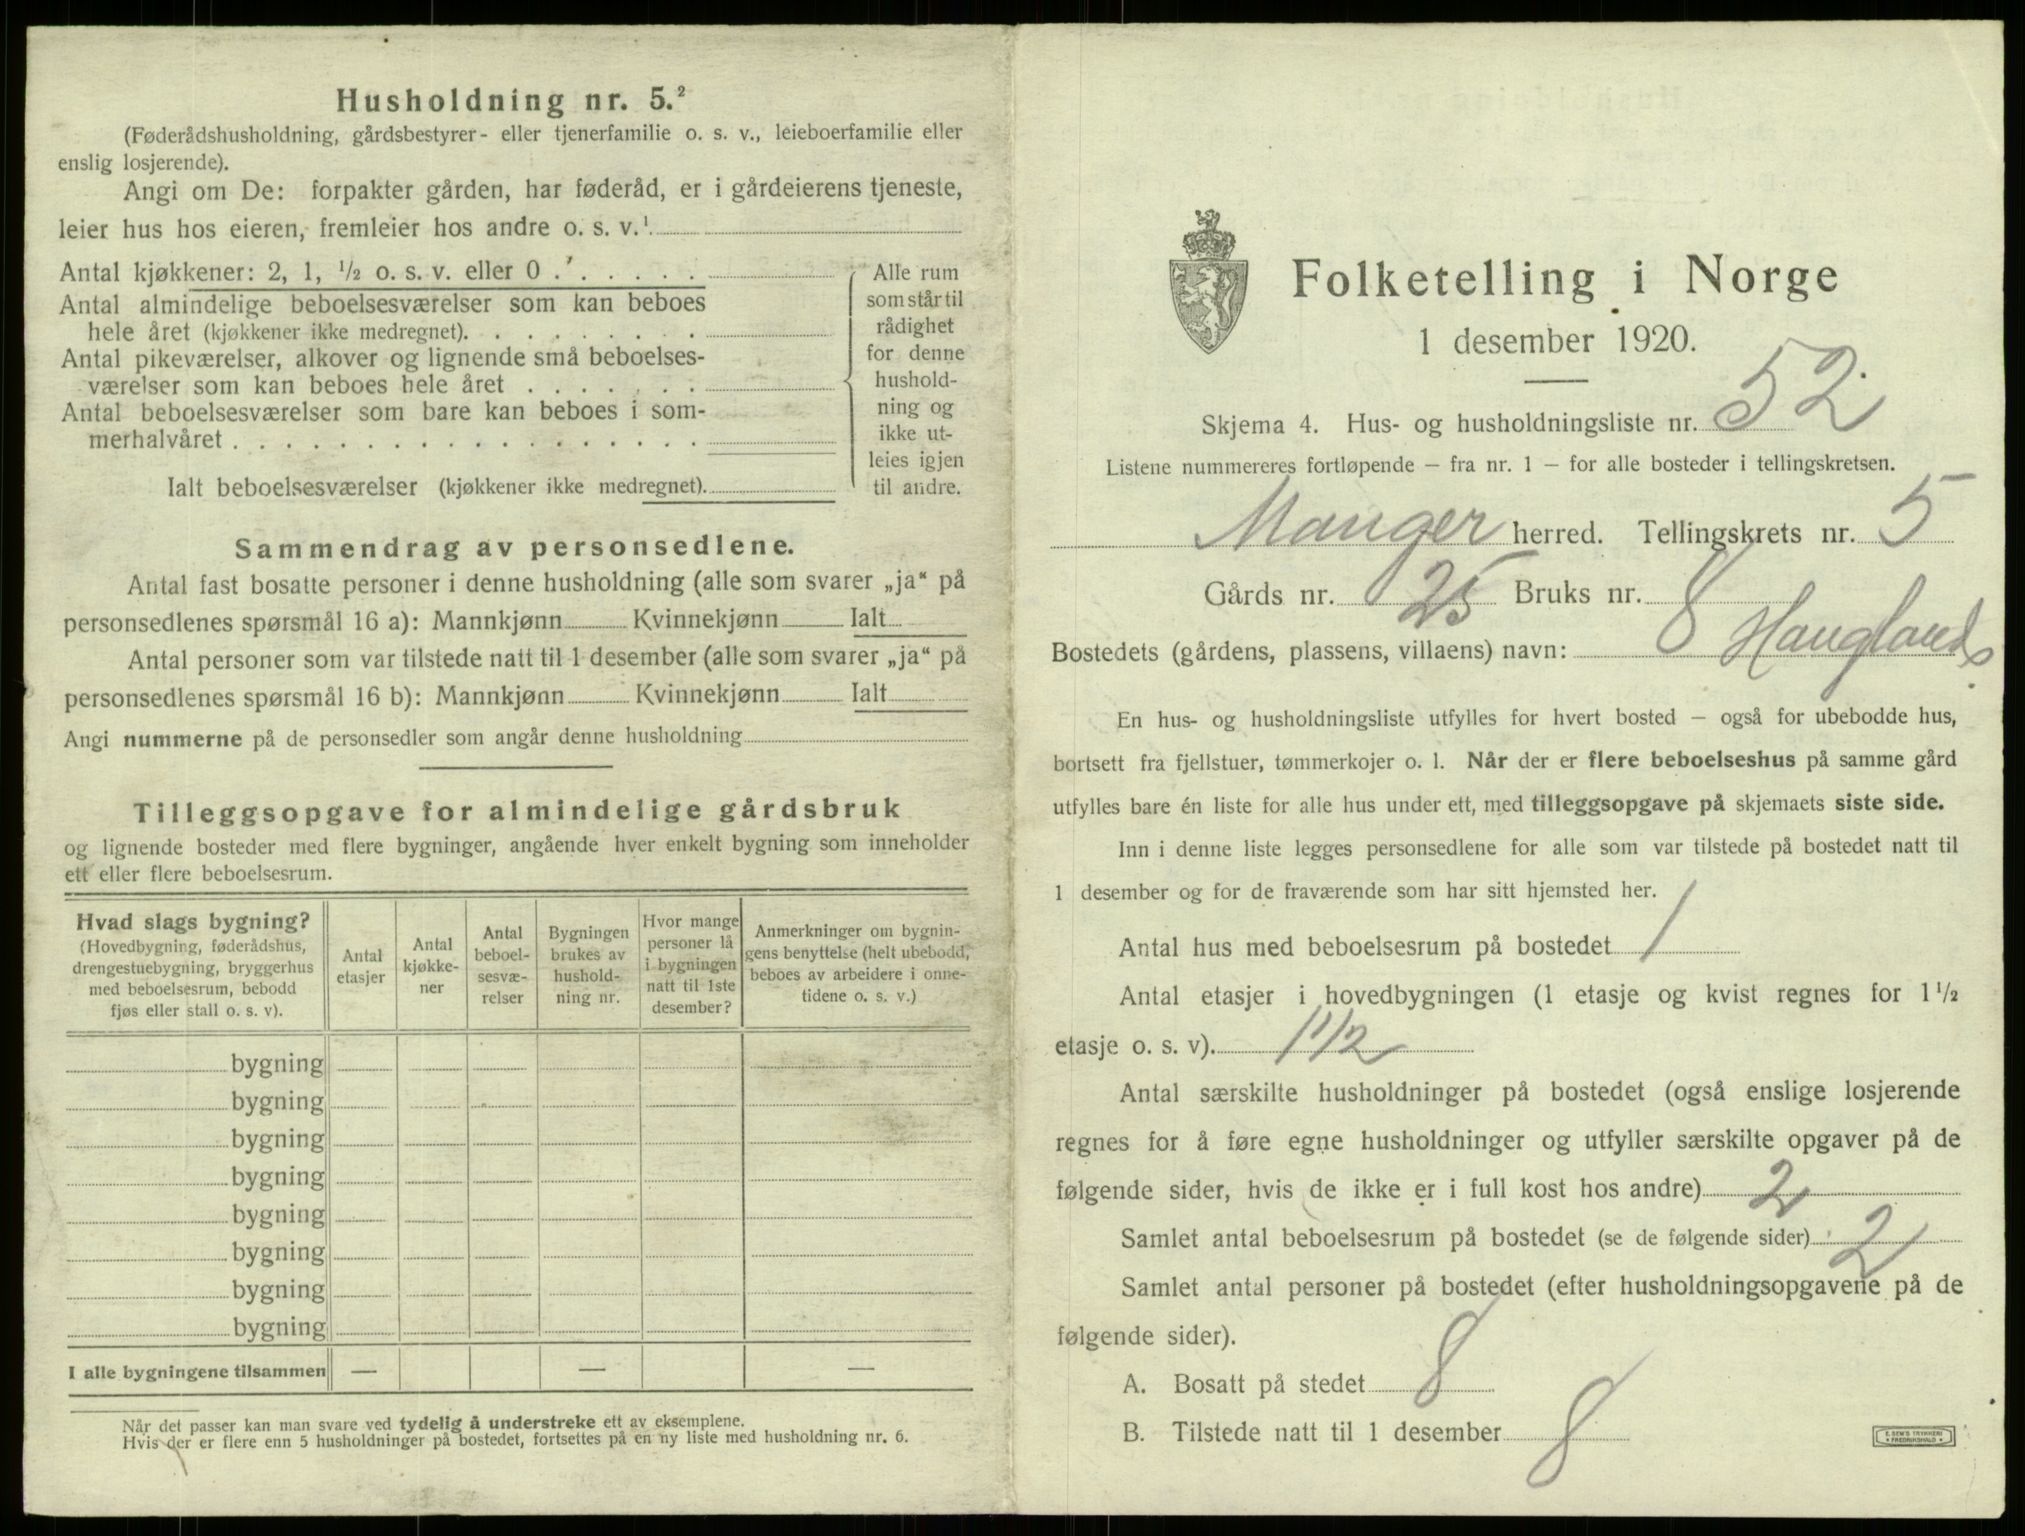 Husholdning nr. 5.²
(Føderådshusholdning, gårdsbestyrer- eller tjenerfamilie o. s. v., leieboerfamilie eller
enslig losjerende).
Angi om De: forpakter gården, har føderåd, er i gårdeierens tjeneste,
leier hus hos eieren, fremleier hos andre o. s. v.¹
Antal kjøkkener: 2, 1, ½ o. s. v. eller 0
Antal almindelige beboelsesværelser som kan beboes
hele året (kjøkkener ikke medregnet).
Antal pikeværelser, alkover og lignende små beboelses-
værelser som kan beboes hele året
Antal beboelsesværelser som bare kan beboes i som-
merhalvåret
Ialt beboelsesværelser (kjøkkener ikke medregnet).
Alle rum
som står til
rådighet
for denne
hushold-
ning og
ikke ut-
leies igjen
til andre.
Sammendrag av personsedlene.
Antal fast bosatte personer i denne husholdning (alle som svarer „ja“ på
personsedlenes spørsmål 16 a): Mannkjønn Kvinnekjønn Ialt
Antal personer som var tilstede natt til 1 desember (alle som svarer „ja“ på
personsedlenes spørsmål 16 b): Mannkjønn Kvinnekjønn Ialt
Angi nummerne på de personsedler som angår denne husholdning
Tilleggsopgave for almindelige gårdsbruk
og lignende bosteder med flere bygninger, angående hver enkelt bygning som inneholder
ett eller flere beboelsesrum.
Hvad slags bygning?
(Hovedbygning, føderådshus,
drengestuebygning, bryggerhus
med beboelsesrum, bebodd
fjøs eller stall o. s. v).
Antal
etasjer
Antal
kjøkke-
ner
Antal
beboel-
sesvæ-
relser
Bygningen
brukes av
hushold-
ning nr.
Hvor mange
personer lå
i bygningen
natt til 1ste
desember?
Anmerkninger om bygnin-
gens benyttelse (helt ubebodd,
beboes av arbeidere i onne-
tidene o. s. v.)
bygning
bygning
bygning
bygning
bygning
bygning
bygning
bygning
I alle bygningene tilsammen — — —
Når det passer kan man svare ved tydelig å understreke ett av eksemplene.
Hvis der er flere enn 5 husholdninger på bostedet, fortsettes på en ny liste med husholdning nr. 6.
Folketelling i Norge
1 desember 1920.
Skjema 4. Hus- og husholdningsliste nr. 52
Listene nummereres fortløpende – fra nr. 1 – for alle bosteder i tellingskretsen.
Manger herred. Tellingskrets nr. 5
Gårds nr. 25 Bruks nr. 8
Bostedets (gårdens, plassens, villaens) navn: Hauglands
En hus- og husholdningsliste utfylles for hvert bosted – også for ubebodde hus,
bortsett fra fjellstuer, tømmerkojer o. l. Når der er flere beboelseshus på samme gård
utfylles bare én liste for alle hus under ett, med tilleggsopgave på skjemaets siste side.
Inn i denne liste legges personsedlene for alle som var tilstede på bostedet natt til
1 desember og for de fraværende som har sitt hjemsted her.
Antal hus med beboelsesrum på bostedet 1
Antal etasjer i hovedbygningen (1 etasje og kvist regnes for 1½
etasje o. s. v). 1 1/2
Antal særskilte husholdninger på bostedet (også enslige losjerende
regnes for å føre egne husholdninger og utfyller særskilte opgaver på de
følgende sider, hvis de ikke er i full kost hos andre) 2
Samlet antal beboelsesrum på bostedet (se de følgende sider) 2
Samlet antal personer på bostedet (efter husholdningsopgavene på de
følgende sider).
A. Bosatt på stedet 8
B. Tilstede natt til 1 desember 8
E. SEM'S TRYKKERI
FREDRIKSHALD